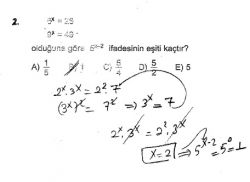 2. 6ˣ = 28
9ˣ = 49
olduğuna göre 5ˣ⁻² ifadesinin eşiti kaçtır?
A) 1/5 B) 1 C) 5/4 D) 5/2 E) 5
2ˣ.3ˣ = 2².7
(3ˣ)² = 7² ⇒ 3ˣ = 7
2ˣ.3ˣ = 2².3ˣ
x=2 ⇒ 5ˣ⁻² = 5⁰ = 1